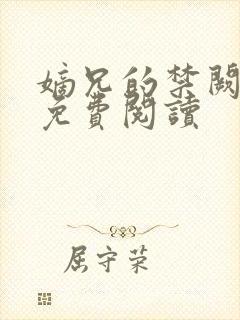 嫡兄的禁闕
免費閱讀
屈守荣